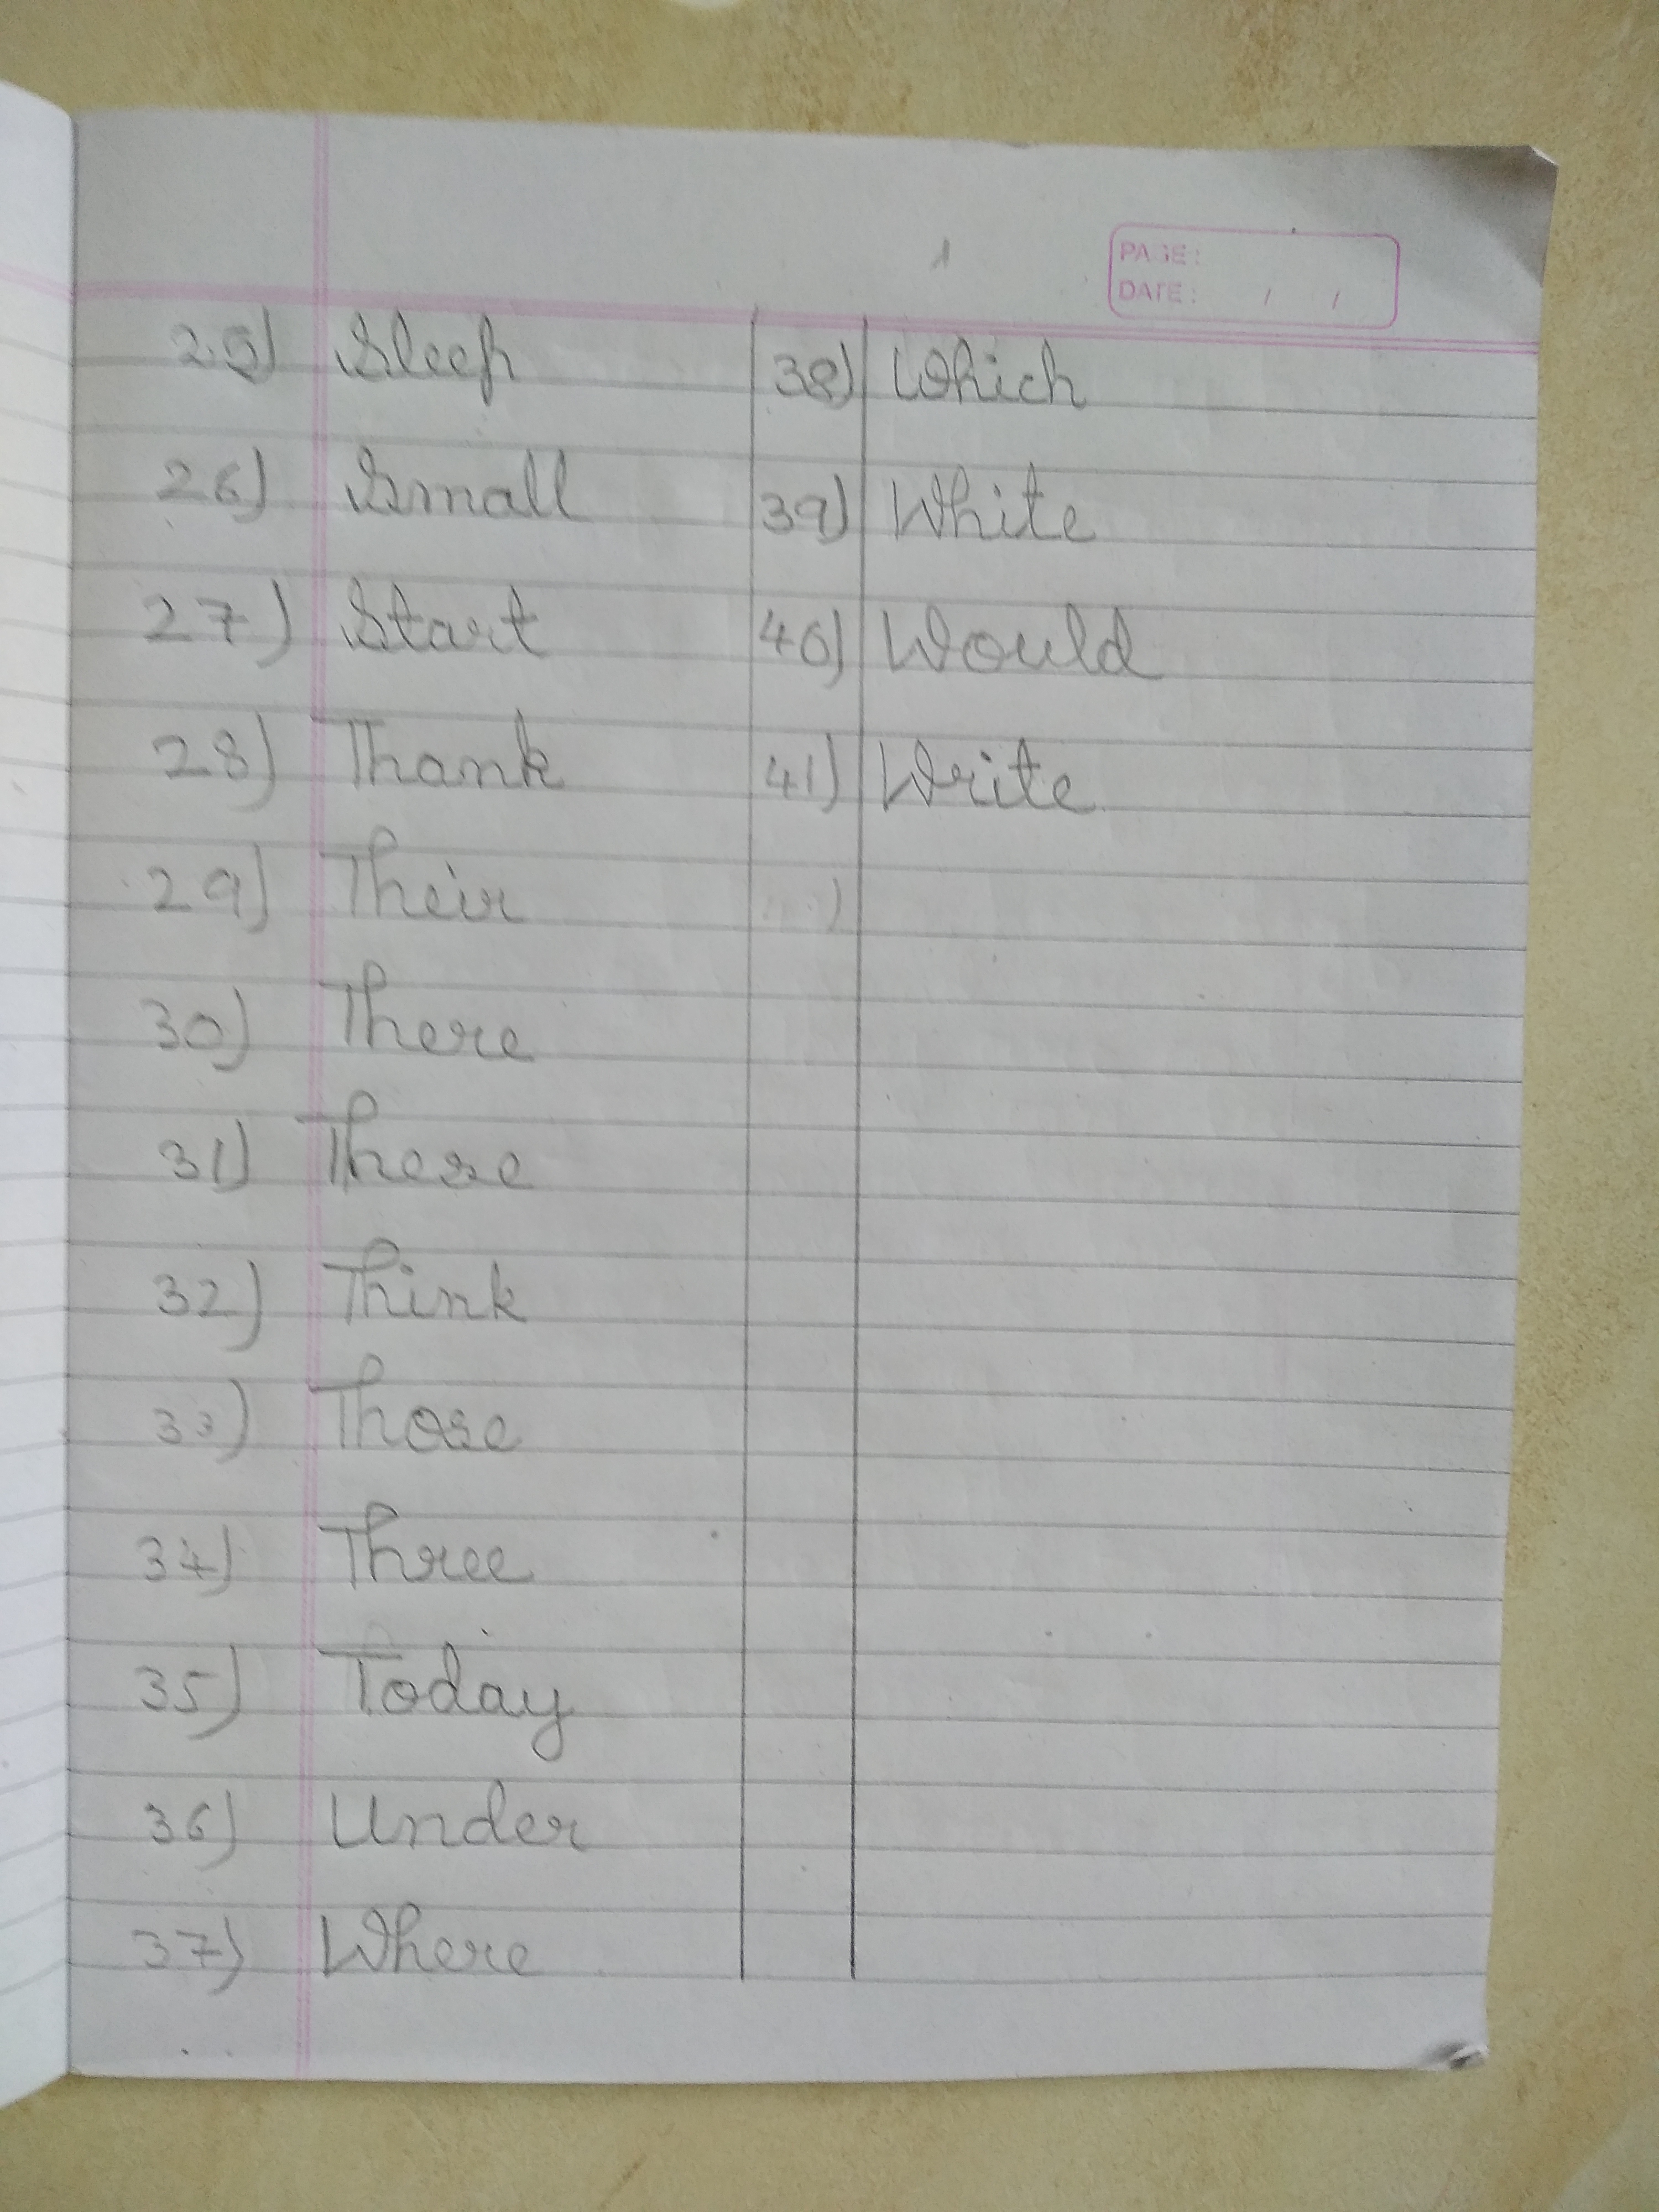 PAGE:
DATE: / /
25) Sleep
26) Small
27) Start
28) Thank
29) Their
30) There
31) These
32) Think
33) Those
34) Three
35) Today
36) Under
37) Where
38) Which
39) White
40) Would
41) Write